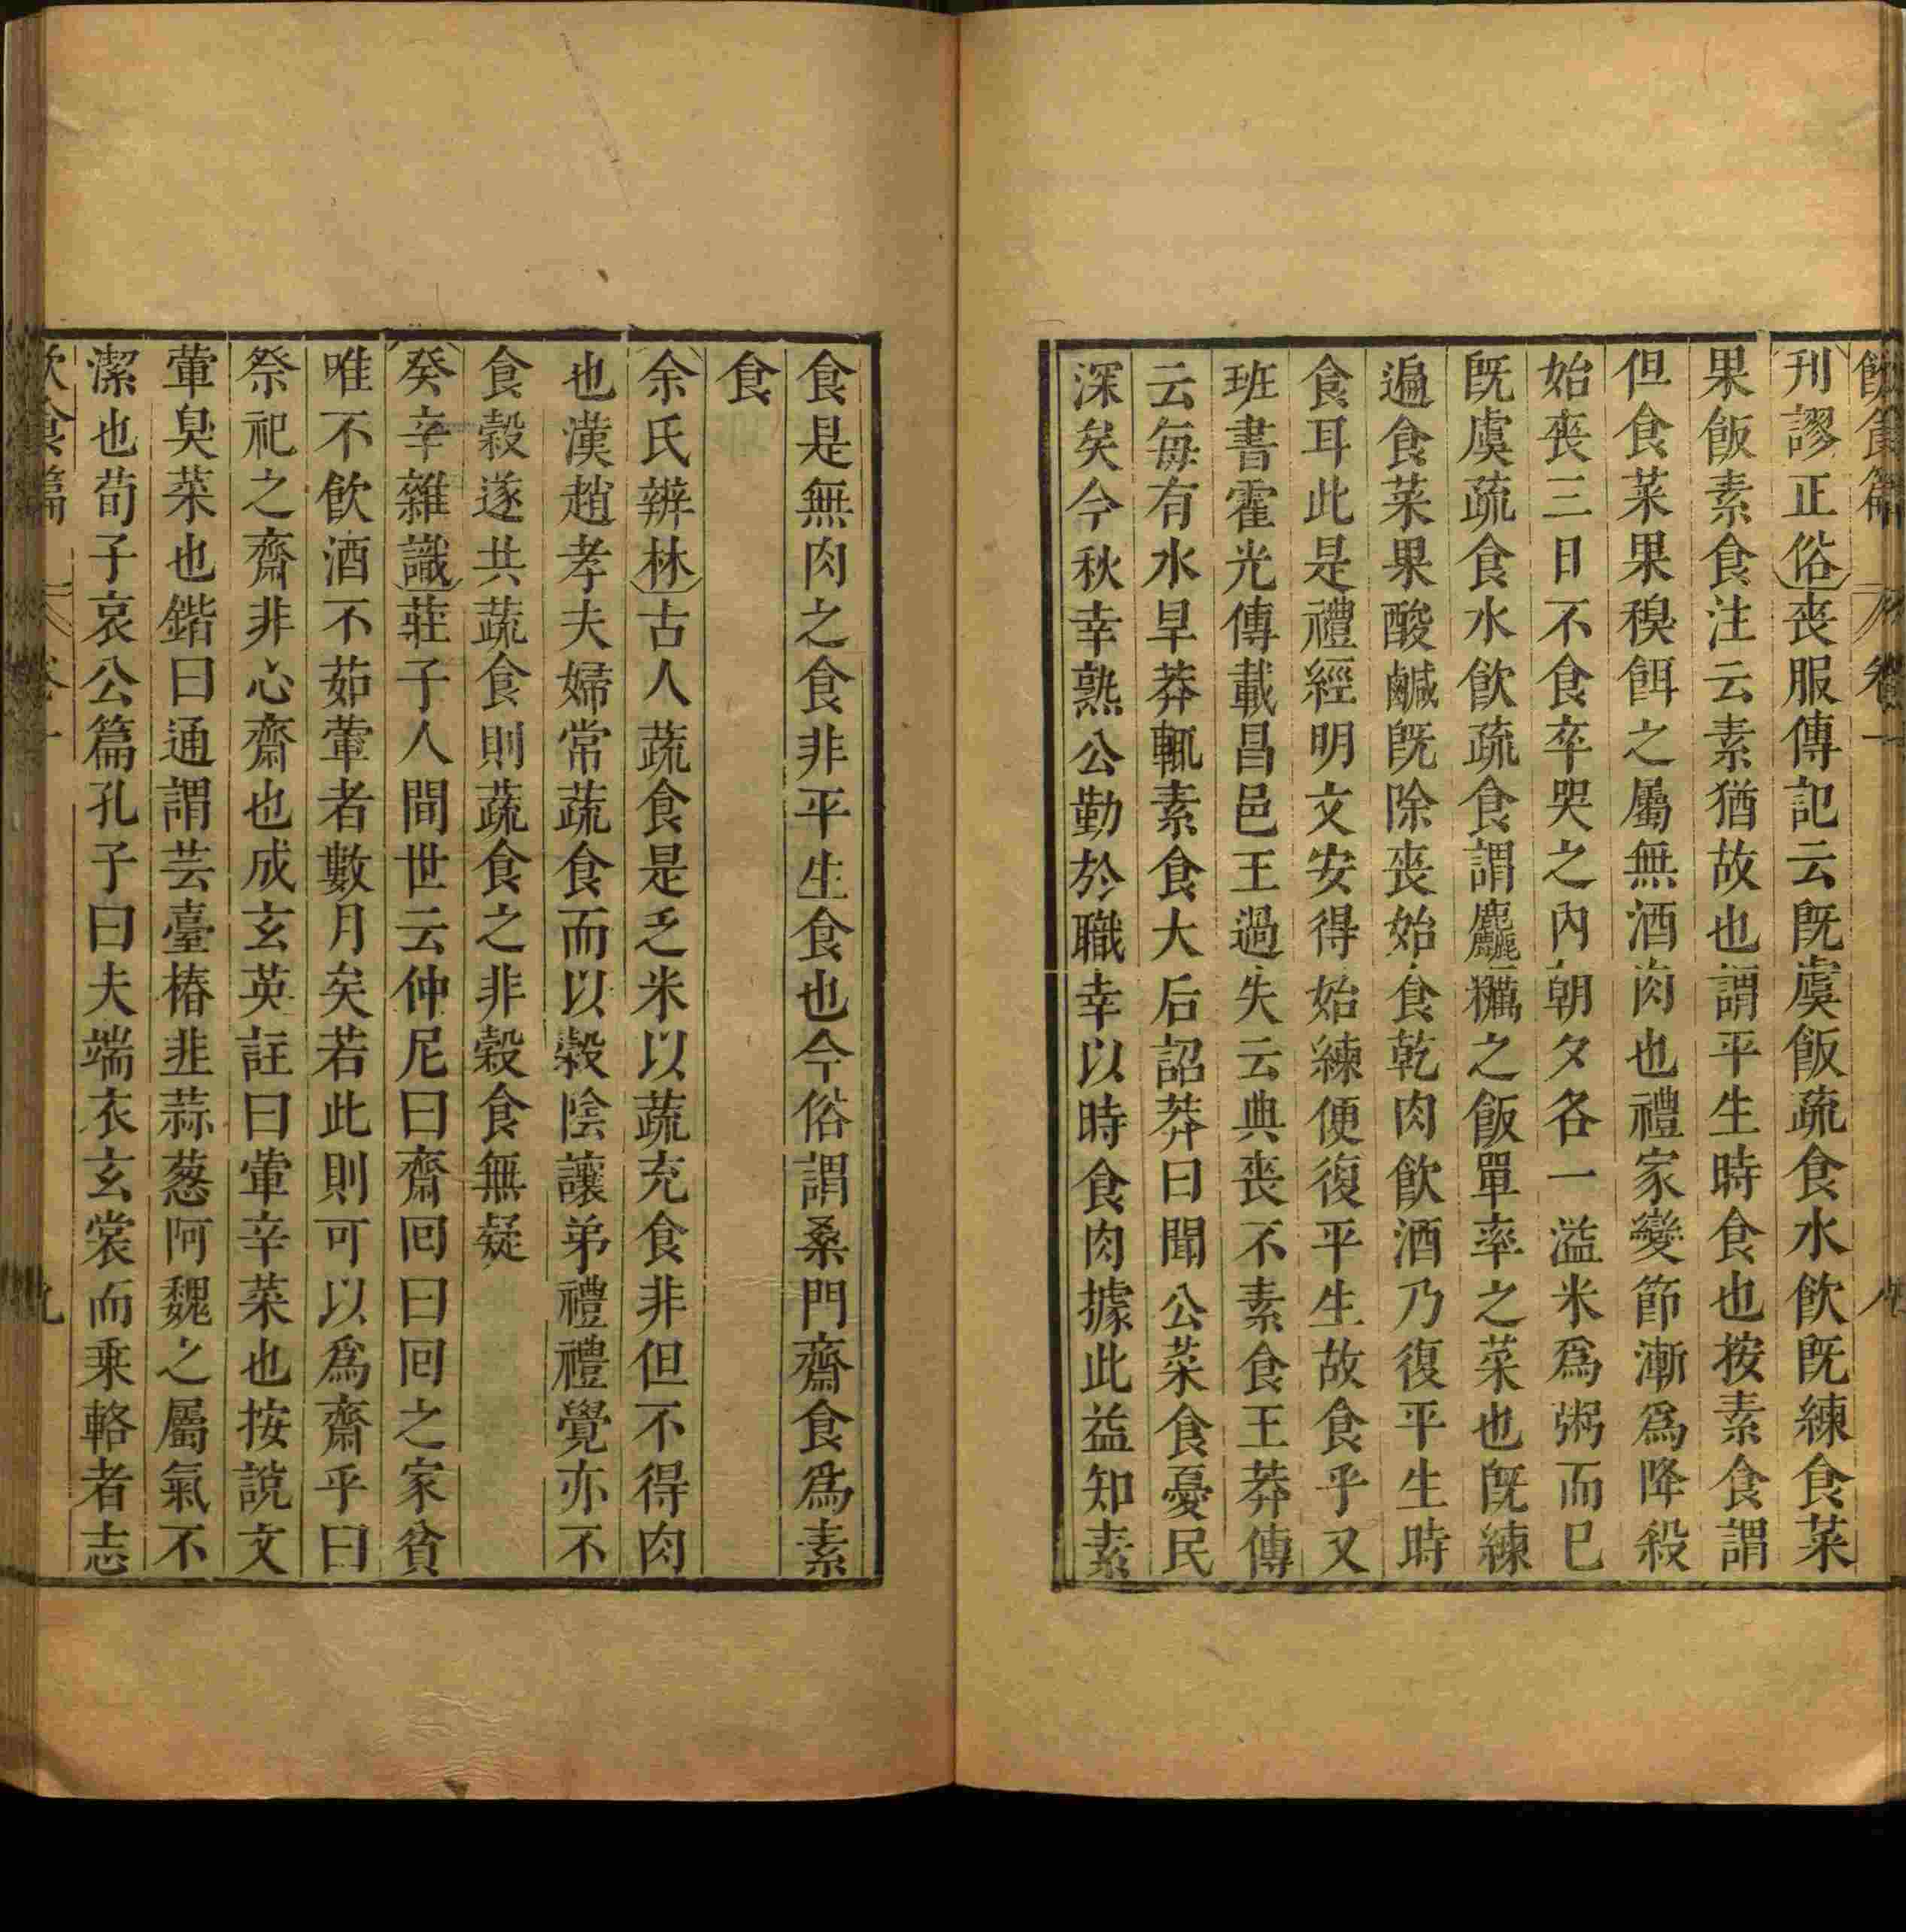 飲食篇 卷一 八
刋謬正俗喪服傳記云旣虞飯疏食水飲旣練食菜
果飯素食注云素猶故也謂平生時食也按素食謂
但食菜果糗餌之屬無酒肉也禮家變節漸爲降殺
始喪三日不食卒哭之內朝夕各一溢米爲粥而巳
旣虞疏食水飲疏食謂麤糲之飯單率之菜也旣練
遍食菜果酸鹹旣除喪始食乾肉飲酒乃復平生時
食耳此是禮經明文安得始練便復平生故食乎又
班書霍光傳載昌邑王過失云典喪不素食王莽傳
云每有水旱莽輒素食大后詔莽曰聞公菜食憂民
深矣今秋幸熟公勤於職幸以時食肉據此益知素
食是無肉之食非平生食也今俗謂桑門齋食爲素
食
余氏辨林古人蔬食是乏米以蔬充食非但不得肉
也漢趙孝夫婦常蔬食而以穀陰讓弟禮禮覺亦不
食穀遂共蔬食則蔬食之非穀食無疑
癸辛雜識莊子人間世云仲尼曰齋回曰回之家貧
唯不飲酒不茹葷者數月矣若此則可以爲齋乎曰
祭祀之齋非心齋也成玄英註曰葷辛菜也按說文
葷臭菜也鍇曰通謂芸臺椿韭蒜葱阿魏之屬氣不
潔也荀子哀公篇孔子曰夫端衣玄裳而乘輅者志
飲食篇 卷一 九